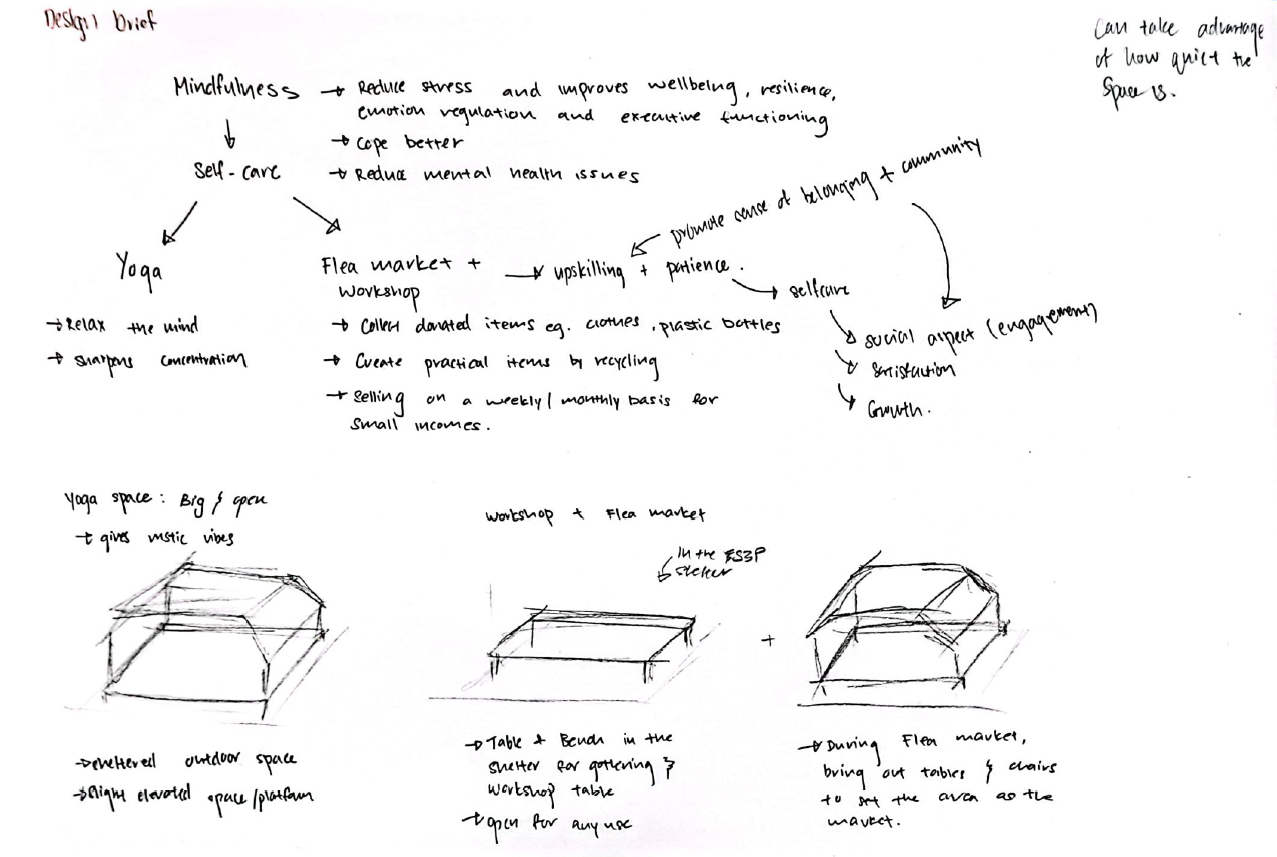 Design brief
Can take advantage
of how quiet the
Space is.
Mindfulness → Reduce stress and improves wellbeing, resilience,
emotion regulation and executive functioning
→ cope better
Self-care → Reduce mental health issues
promote sense of belonging + community
Yoga
→ Relax the mind
→ sharpens concentration
Flea market +
Workshop
→ upskilling + patience.
→ Collect donated items eg. clothes, plastic bottles
→ Create practical items by recycling
→ Selling on a weekly/monthly basis for
small incomes.
→ selfcare
social aspect (engagement)
Satisfaction
Growth.
Yoga space: Big & open
→ gives rustic vibes
Workshop + Flea market
In the
shelter
+
→ sheltered outdoor space
→ slight elevated space/platform
→ Table + Bench in the
shelter for gathering &
workshop table
→ open for any use
→ During Flea market,
bring out tables & chairs
to set the area as the
market.